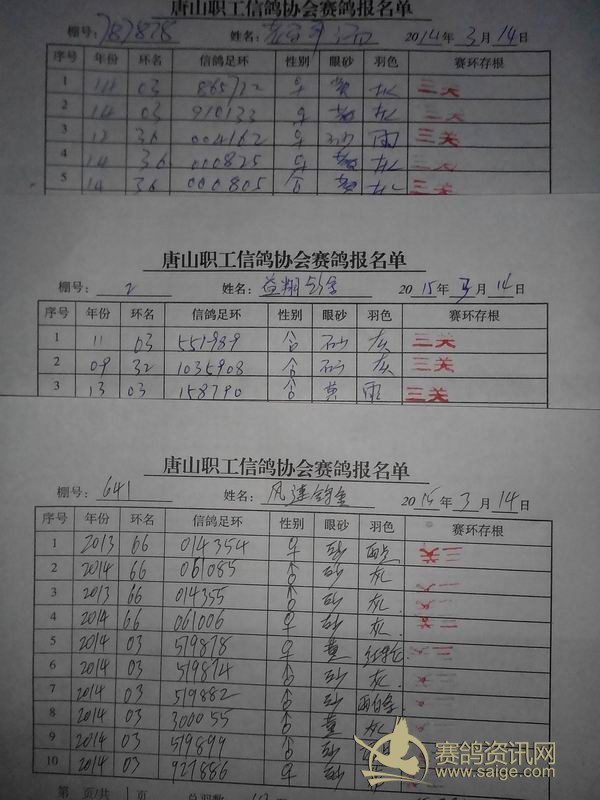 唐山职工信鸽协会赛鸽报名单
棚号: 787878 姓名: 2014年3月14日
序号 年份 环名 信鸽足环 性别 眼砂 羽色 赛环存根
1 14 03 865722 ♀ 黄 灰 三关
2 14 03 910133 ♀ 黄 灰 三关
3 12 36 004162 ♀ 砂 雨 三关
4 14 36 000825 ♀ 黄 灰 三关
5 14 36 000805 黄 灰 三关
唐山职工信鸽协会赛鸽报名单
棚号: 2 姓名: 益翔鸽舍 2015年3月14日
序号 年份 环名 信鸽足环 性别 眼砂 羽色 赛环存根
1 11 03 551989 砂 灰 三关
2 09 32 1035908 砂 灰 三关
3 13 03 158790 黄 雨 三关
唐山职工信鸽协会赛鸽报名单
棚号: 641 姓名: 风速鸽舍 2015年3月14日
序号 年份 环名 信鸽足环 性别 眼砂 羽色 赛环存根
1 2013 66 014354 ♀ 砂 雨点 三关
2 2014 66 061085 砂 灰
3 2013 66 014355 砂 灰
4 2014 66 061006 ♀ 砂 灰 三关
5 2014 03 519878 ♀ 黄
6 2014 03 519874 砂 灰
7 2014 03 519882 砂 雨白条
8 2014 03 300055 黄 灰
9 2014 03 519899 砂 灰
10 2014 03 927886 ♀ 砂 灰
第 页/共 1 页
赛鸽资讯网
www.saige.com